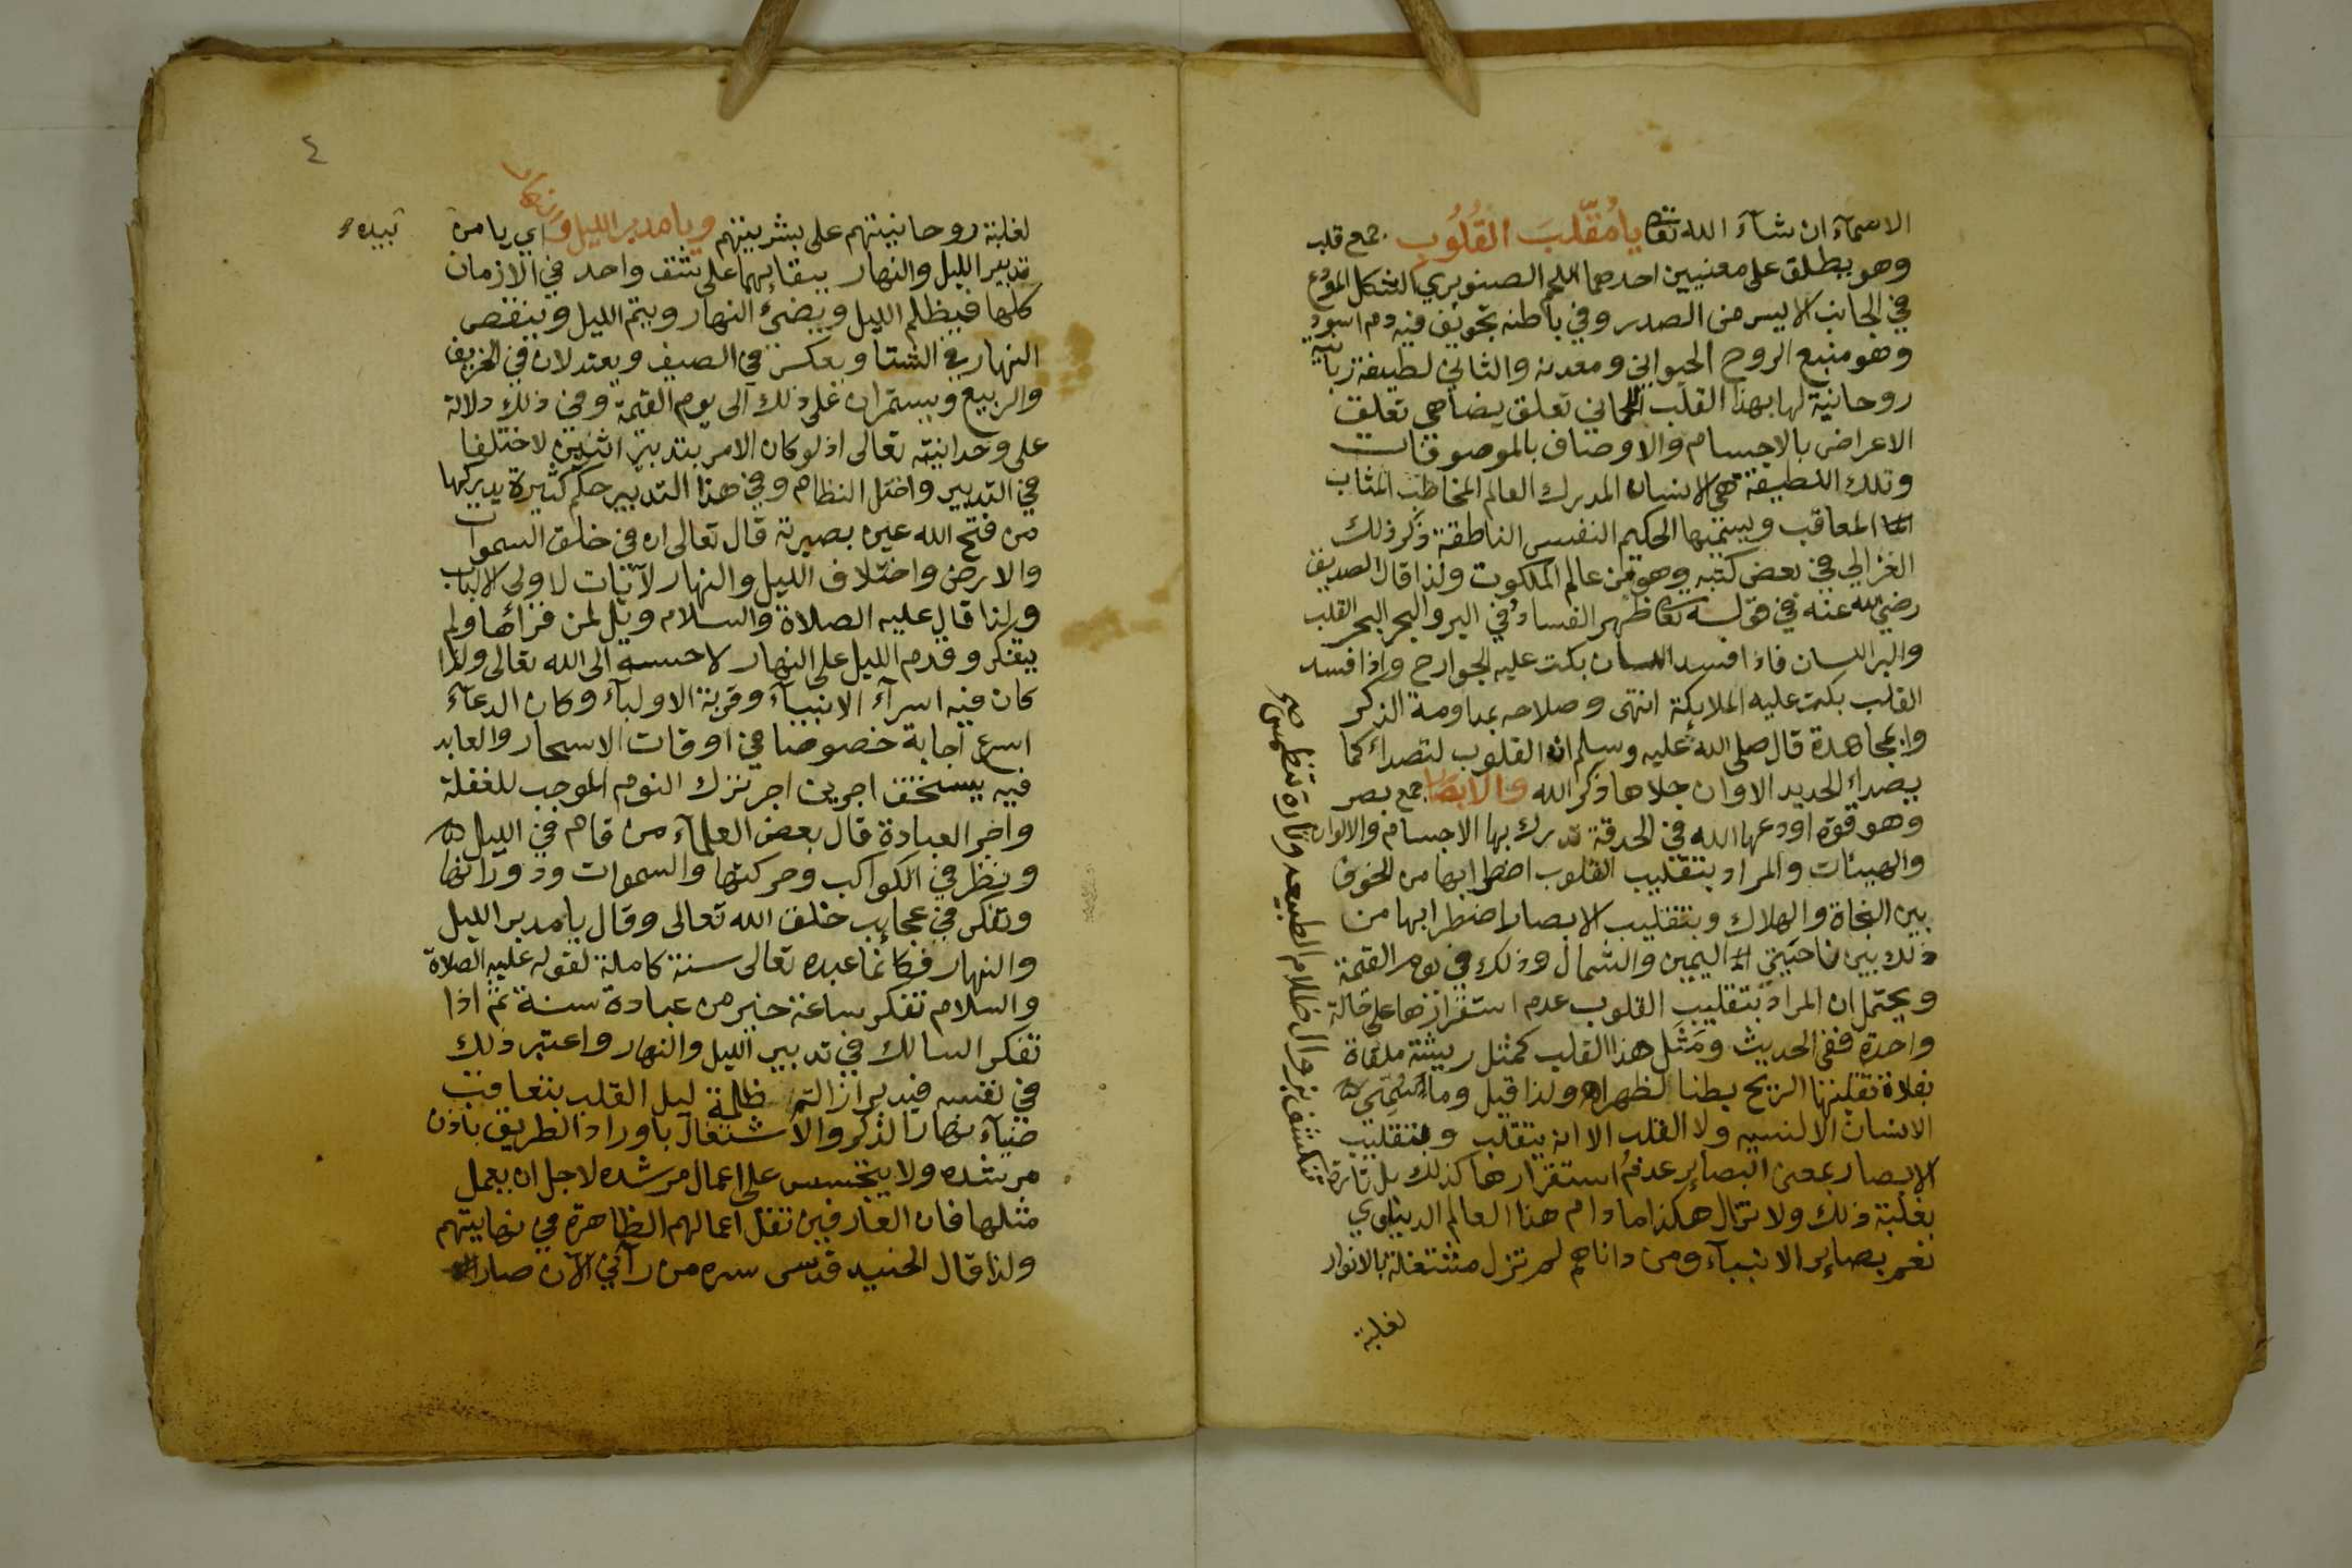 الاسمآء ان شآء الله تعا يا مُقَلِّبَ القُلُوبِ جمع قلب
وهو يطلق على معنيين احدهما اللحم الصنوبري الشكل المودع
في الجانب الايسر من الصدر وفي باطنه تجويف فيه دم اسود
وهو منبع الروح الحيواني ومعدنه والثاني لطيفة ربانية
روحانية لها بهذا القلب اللحماني تعلق يضاهي تعلق
الاعراض بالاجسام والاوصاف بالموصوفات
وتلك اللطيفة هي الانسان المدرك العالم المخاطب المثاب
المعاقب ويسميها الحكيم النفس الناطقة ذكر ذلك
الغزالي في بعض كتبه وهو من عالم الملكوت ولذا قال الصديق
رضي الله عنه في قوله تعا ظهر الفساد في البر والبحر البحر القلب
والبر اللسان فاذا فسد اللسان بكت عليه الجوارح واذا فسد
القلب بكت عليه الملايكة انتهى وصلاحه بمداومة الذكر
والمجاهدة قال صلى الله عليه وسلم ان القلوب لتصداء كما
يصداء الحديد الا وان جلاها ذكر الله والابصار جمع بصر
وهو قوة اودعها الله في الحدقة تدرك بها الاجسام والالوان
والهيئات والمراد بتقليب القلوب اضطرابها من الخوف
بين النجاة والهلاك وبتقليب الابصار اضطرابها من
ذلك بين ناحيتي اليمين والشمال وذلك في يوم القيمة
ويحتمل ان المراد بتقليب القلوب عدم استقرارها على حالة
واحدة ففي الحديث ومَثَل هذا القلب كمثل ريشة ملقاة
بفلاة تقلبها الريح بطنا لظهر ولذا قيل وما سُمِّي
الانسان الا لنسيه ولا القلب الا انه يتقلب وبتقليب
الابصار بمعنى البصاير عدمُ استقرارها كذلك بل تارة
تنكشف بزوال ظلام الطبيعه وتارة تنطمس صح
بغلبة ذلك ولا تزال هكذا ما دام هذا العالم الدنياوي
نعم بصاير الانبيآء ومن داناهم لم تزل مشتغلة بالانوار
لغلبة
٤
لغلبة روحانيتهم على بشريتهم ويا مدبر الليل والنهار اي يا من
تدبير الليل والنهار ببقايهما على نسق واحد في الازمان
كلها فيظلم الليل ويضئ النهار ويتم الليل وينقص
النهار في الشتا وبعكس في الصيف ويعتدلان في الخريف
والربيع ويستمران على ذلك الى يوم القيمة وفي ذلك دلالة
على وحدانيته تعالى اذ لو كان الامر بتدبير اثنين لاختلفا
في التدبير واختل النظام وفي هذا التدبير حكم كثيرة يدركها
من فتح الله عين بصيرته قال تعالى ان في خلق السموات
والارض واختلاف الليل والنهار لآيات لاولى الالباب
ولذا قال عليه الصلاة والسلام ويل لمن قرأها ولم
يتفكر وقدم الليل على النهار لاحسبه الى الله تعالى ولذا
كان فيه اسرآء الانبيآء وقربة الاوليآء وكان الدعآء
اسرع اجابة خصوصا في اوقات الاسحار والعابد
فيه يستحق اجرين اجر ترك النوم الموجب للغفلة
واجر العبادة قال بعض العلمآء من قام في الليل
ونظر في الكواكب وحركتها والسموات ودورانها
وتفكر في عجايب خلق الله تعالى وقال يا مدبر الليل
والنهار فكانما عبده تعالى سنة كاملة لقوله عليه الصلاة
والسلام تفكر ساعة خير من عبادة سنة ثم اذا
تفكر السالك في تدبير الليل والنهار واعتبر ذلك
في نفسه فيدبر ازالة ظلمة ليل القلب بتعاقب
ضيآء نهار الذكر والاشتغال باوراد الطريق باذن
مرشده ولا يتجسس على اعمال مرشده لاجل ان يعمل
مثلها فان العارفين تقل اعمالهم الظاهرة في نهايتهم
ولذا قال الجنيد قدس سره من رآني الآن صار